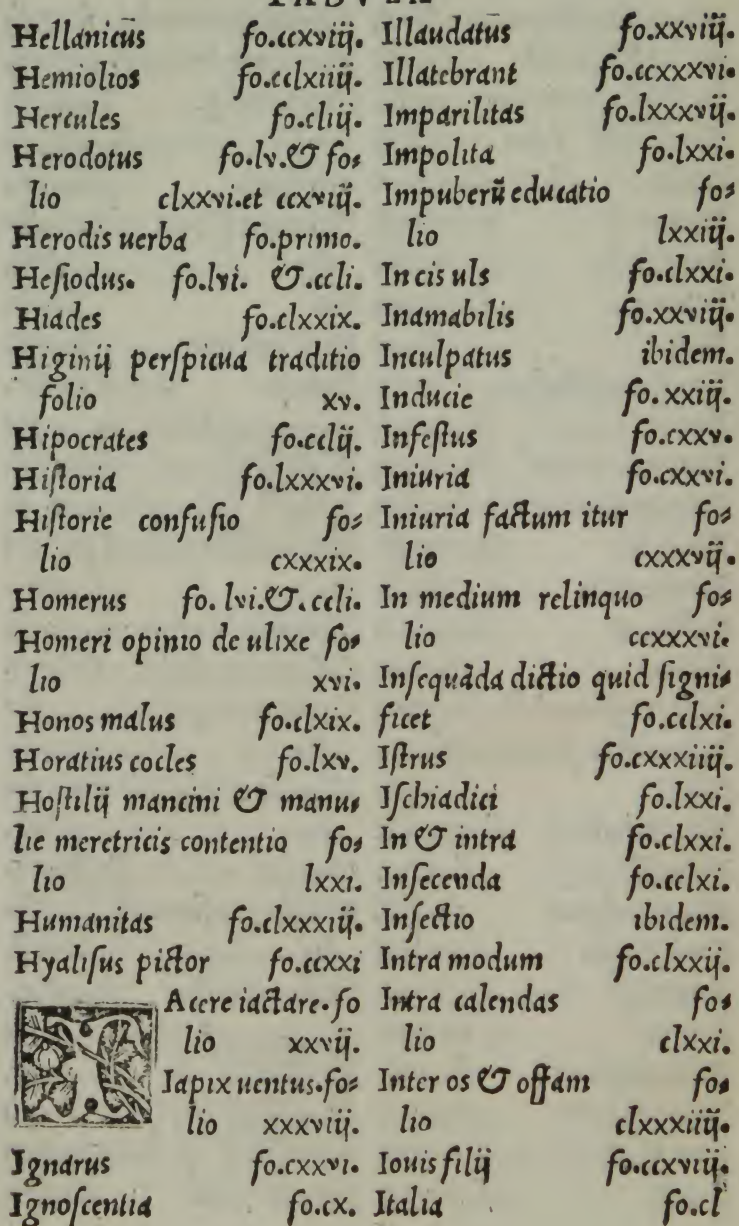 Hellanicus fo.ccxviij.
Hemiolios fo.cclxiiij.
Hercules fo.clij.
Herodotus fo.lv.& fo⸗
lio clxxvi.et ccxviij.
Herodis uerba fo.primo.
Heſiodus. fo.lvi. &.ccli.
Hiades fo.clxxix.
Higinij perſpicua traditio
folio xv.
Hipocrates fo.cclij.
Hiſtoria fo.lxxxvi.
Hiſtorie confuſio fo⸗
lio cxxxix.
Homerus fo. lvi.&.ccli.
Homeri opinio de ulixe fo⸗
lio xvi.
Honos malus fo.clxix.
Horatius cocles fo.lxv.
Hoſtilij mancini & manu⸗
lie meretricis contentio fo⸗
lio lxxi.
Humanitas fo.clxxxiij.
Hyaliſus pictor fo.ccxxi
Acere iactare.fo
lio xxvij.
Iapix uentus.fo⸗
lio xxxviij.
Ignarus fo.cxxvi.
Ignoſcentia fo.cx.
Illaudatus fo.xxviij.
Illatebrant fo.ccxxxvi.
Imparilitas fo.lxxxvij.
Impolita fo.lxxi.
Impuberū educatio fo⸗
lio lxxiij.
In cis uls fo.clxxi.
Inamabilis fo.xxviij.
Inculpatus ibidem.
Inducie fo. xxiij.
Infeſtus fo.cxxv.
Iniuria fo.cxxvi.
Iniuria factum itur fo⸗
lio cxxxvij.
In medium relinquo fo⸗
lio ccxxxvi.
Inſequāda dictio quid ſigni⸗
ficet fo.cclxi.
Iſtrus fo.cxxxiiij.
Iſchiadici fo.lxxi.
In & intra fo.clxxi.
Inſecenda fo.cclxi.
Inſectio ibidem.
Intra modum fo.clxxij.
Intra calendas fo⸗
lio clxxi.
Inter os & offam fo⸗
lio clxxxiiij.
Iouis filij fo.ccxviij.
Italia fo.cl